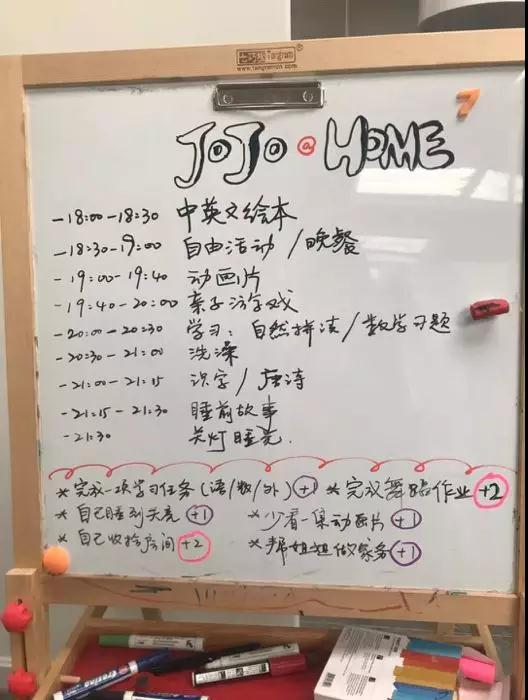 www.tangramcn.com
7
JOJO @ HOME
-18:00-18:30 中英文绘本
-18:30-19:00 自由活动/晚餐
-19:00-19:40 动画片
-19:40-20:00 亲子游戏
-20:00-20:30 学习:自然拼读/数学习题
-20:30-21:00 洗澡
-21:00-21:15 识字/唐诗
-21:15-21:30 睡前故事
-21:30 关灯睡觉.
*完成一项学习任务(语/数/外) +1 *完成舞蹈作业 +2
*自己睡到天亮 +1 *少看一集动画片 +1
*自己收拾房间 +2 *帮姐姐做家务 +1